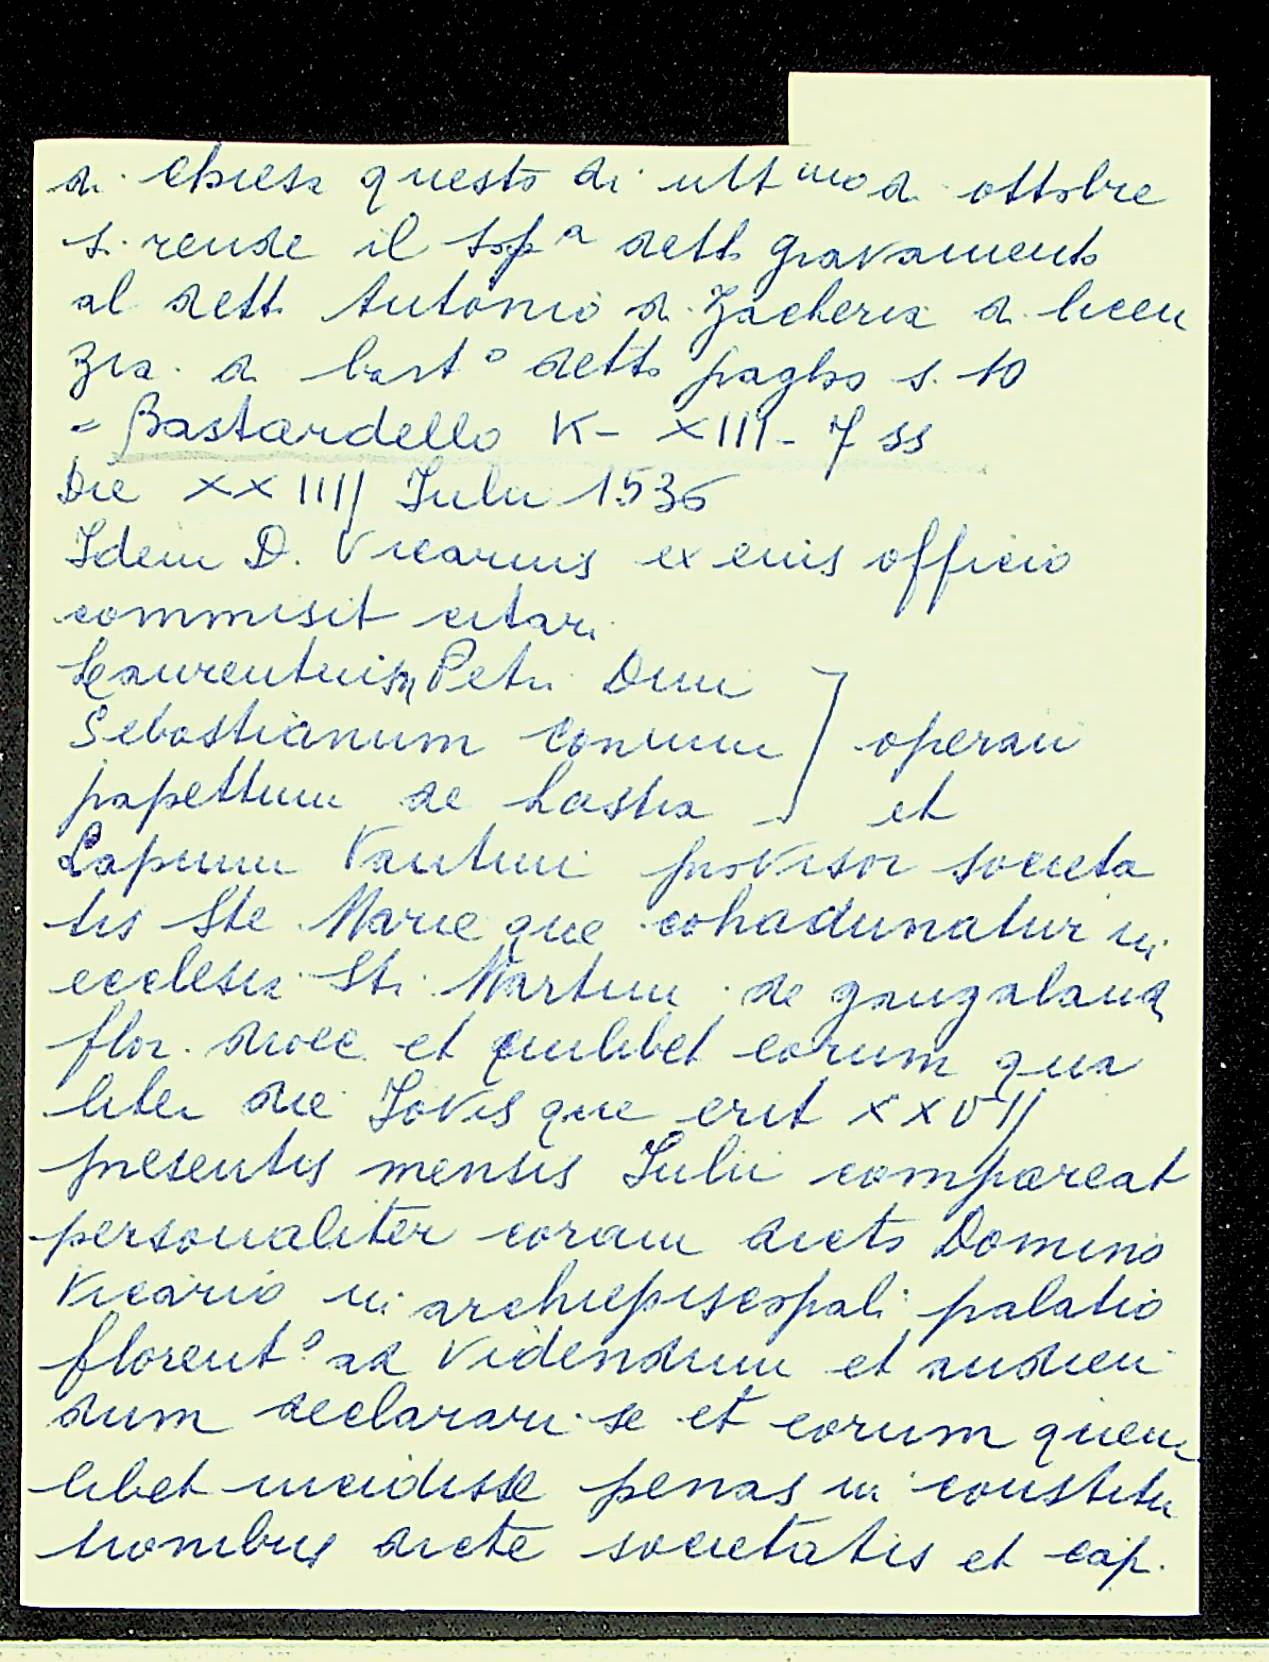 di chiesa questo di ult mo di ottobre
si rende il sop a detto gravamento
al detto Antonio di Zacheria di licen
zia di bart o detto pagho s. 10
= Bastardello K- XIII- 7 ss
Die XXIIII Iulii 1536
Idem D. Vicarius ex eius officio
commisit citari
Laurentium Petri Dini
Sebastianum Conium } operari
papettum de Lastra et
Lapinum Vantini provisor societa
tis Ste Marie que cohadunatur in
ecclesia Sti Martini de gangalandi
flor. dioce. et quilibet eorum qua
liter die Jovis que erit XXVII
presentis mensis Iulii compareat
personaliter coram dicto Domino
Vicario in archiepiscopali palatio
florent o ad videndum et audien
dum declarari se et eorum quem
libet incidisse penas in constitu
tionibus dicte societatis et cap.